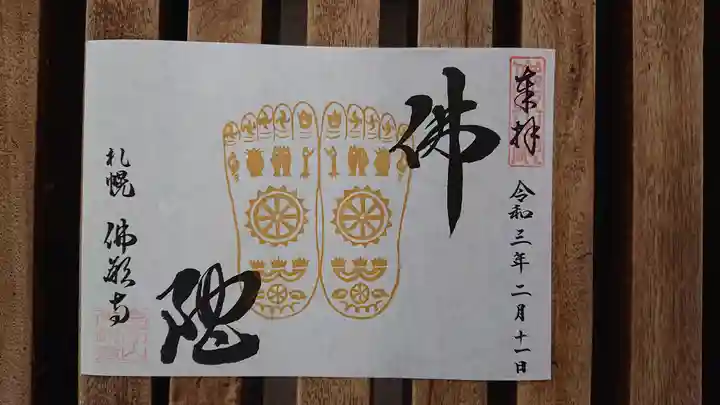 奉拝
令和三年二月十一日
佛
陀
札幌 佛願寺